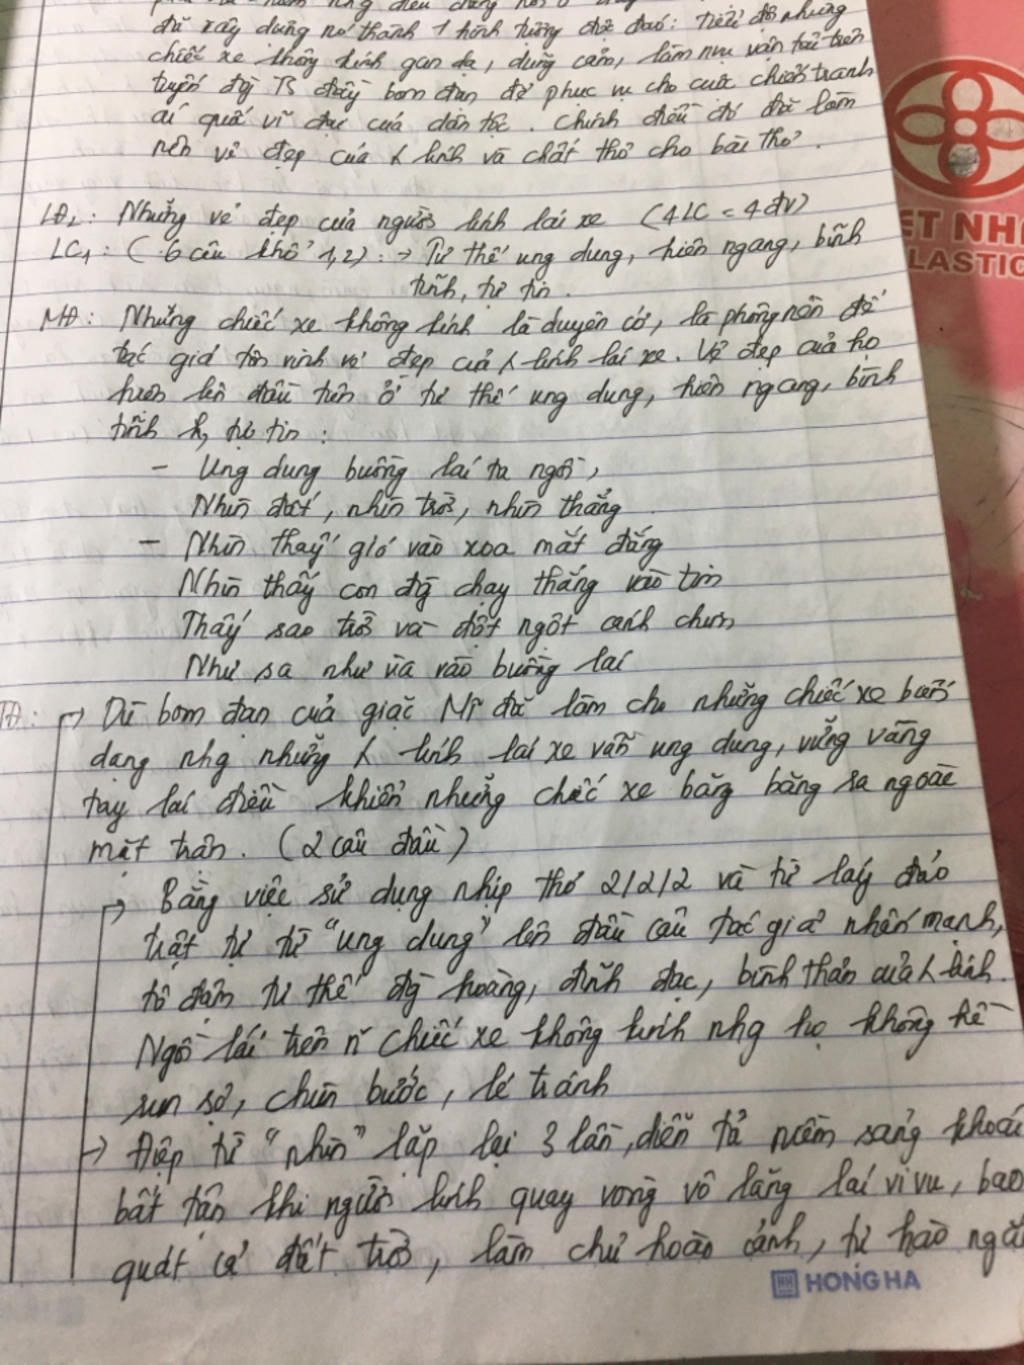 đã xây dựng nó thành 1 hình tượng độc đáo: Tiểu đội những
chiếc xe không kính gan dạ, dũng cảm, làm nvụ vận tải trên
tuyến đg TS đầy bom đạn để phục vụ cho cuộc chiến tranh
ái quốc vĩ đại của dân tộc. Chính điều đó đã làm
nên vẻ đẹp của λ lính và chất thơ cho bài thơ.
LĐ2: Những vẻ đẹp của người lính lái xe (4LC = 4đv)
LC1: (6 câu khổ 1,2): → Tư thế ung dung, hiên ngang, bình
tĩnh, tự tin.
MĐ: Những chiếc xe không kính là duyên cớ, là phông nền để
tác giả tôn vinh vẻ đẹp của λ lính lái xe. Vẻ đẹp của họ
hiện lên đầu tiên ở tư thế ung dung, hiên ngang, bình
tĩnh, tự tin:
- Ung dung buồng lái ta ngồi,
Nhìn đất, nhìn trời, nhìn thẳng
- Nhìn thấy gió vào xoa mắt đắng
Nhìn thấy con đg chạy thẳng vào tim
Thấy sao trời và đột ngột cánh chim
Như sa như ùa vào buồng lái
TĐ: → Dù bom đạn của giặc Mĩ đã làm cho những chiếc xe biến
dạng nhg những λ lính lái xe vẫn ung dung, vững vàng
tay lái điều khiển những chiếc xe băng băng ra ngoài
mặt trận. (2 câu đầu)
→ Bằng việc sử dụng nhịp thơ 2/2/2 và từ láy đảo
trật tự từ "ung dung" lên đầu câu tác giả nhấn mạnh,
tô đậm tư thế đg hoàng, đĩnh đạc, bình thản của λ lính.
Ngồi lái trên n~ chiếc xe không kính nhg họ không hề
run sợ, chùn bước, lé tránh
→ Điệp từ "nhìn" lặp lại 3 lần, diễn tả niềm sảng khoái
bất tận khi người lính quay vòng vô lăng lái vi vu, bao
quát cả đất trời, làm chủ hoàn cảnh, tự hào
HONG HA
ET NH
LASTIC